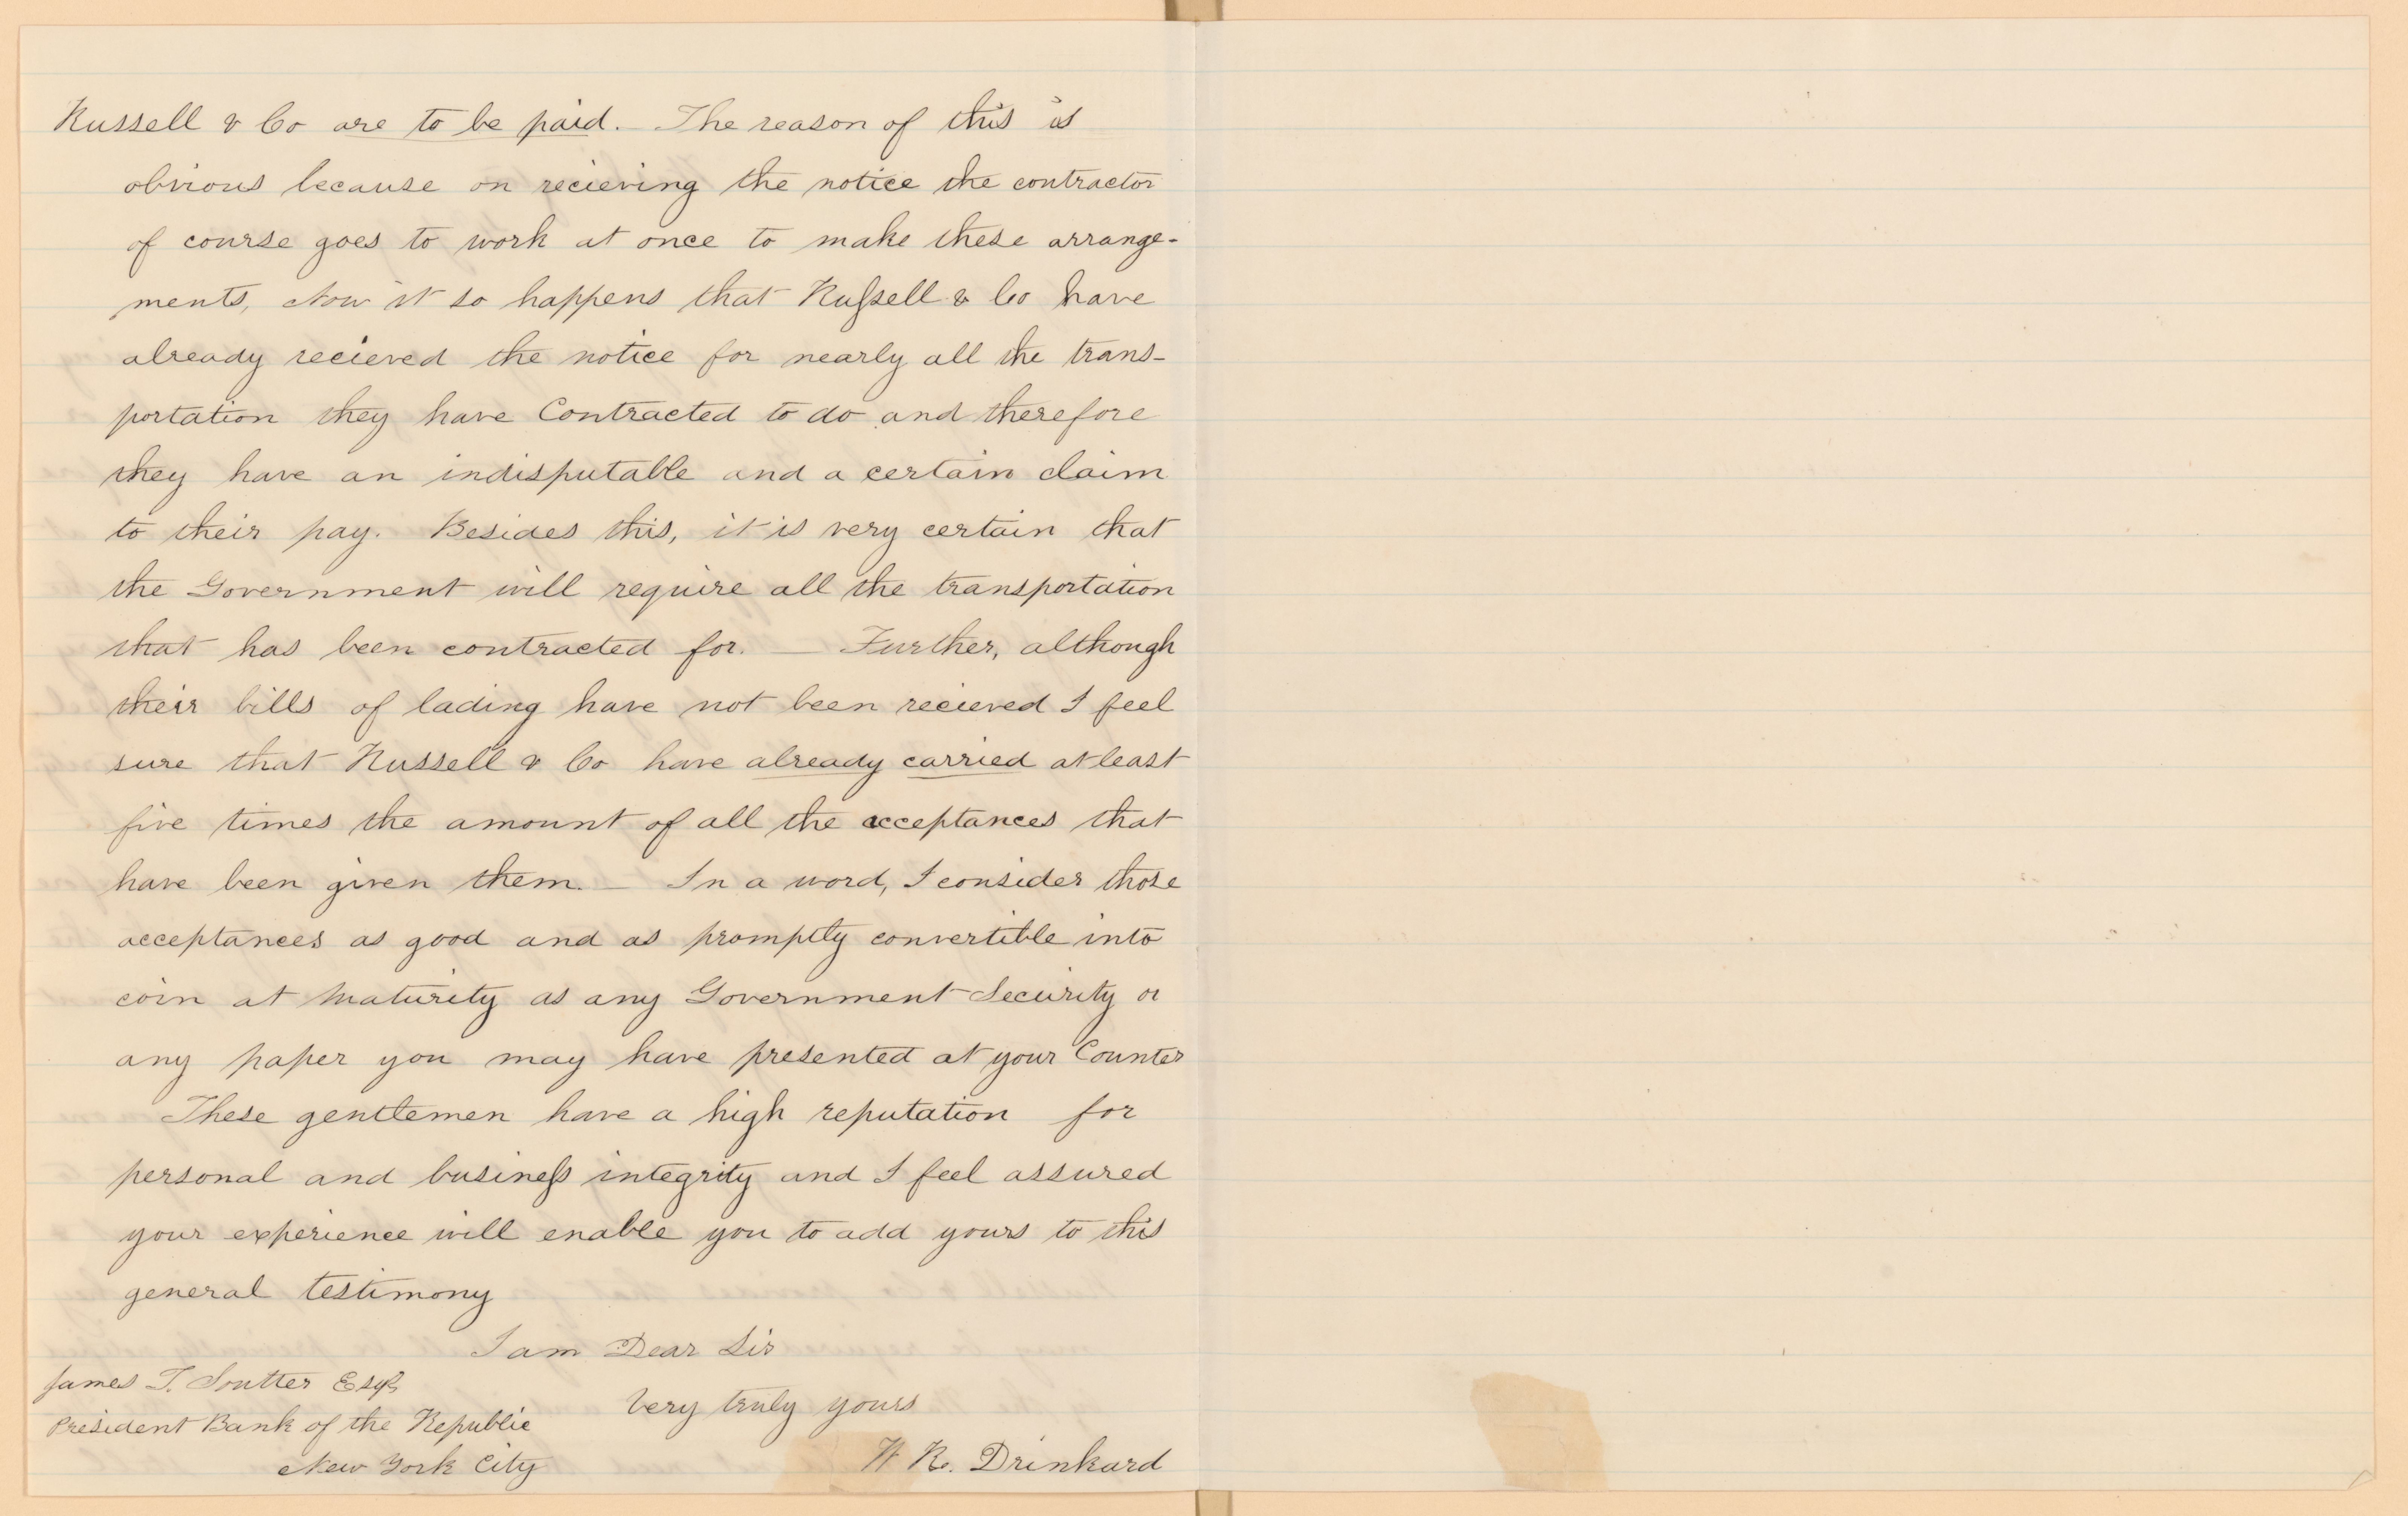 Russell & Co are to be paid. — The reason of this is
obvious because on recieving the notice the contractor
of course goes to work at once to make these arrange-
ments, Now it so happens that Russell & Co have
already recieved the notice for nearly all the trans-
portation they have Contracted to do and therefore
they have an indisputable and a certain claim
to their pay. Besides this, it is very certain that
the Government will require all the transportation
that has been contracted for. — Further, although
their bills of lading have not been recieved I feel
sure that Russell & Co have already carried at least
five times the amount of all the acceptances that
have been given them. — In a word, I consider those
acceptances as good and as promptly convertible into
coin at maturity as any Government Security or
any paper you may have presented at your Counter
These gentlemen have a high reputation for
personal and business integrity and I feel assured
your experience will enable you to add yours to this
general testimony
I am Dear Sir
Very truly yours
W R. Drinkard
James T. Soutter Esqr
President Bank of the Republic
New York City